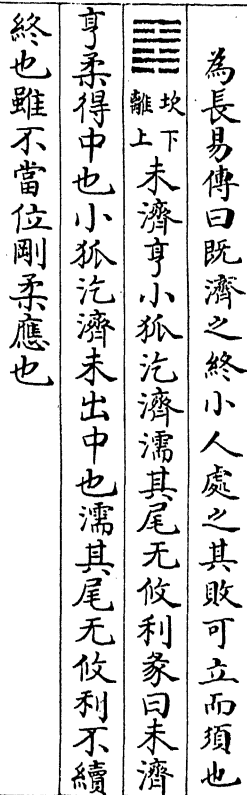 為長易傳曰既濟之終小人處之其敗可立而須也
坎下
離上
未濟亨小狐汔濟濡其尾无攸利彖曰未濟
亨柔得中也小狐汔濟未出中也濡其尾无攸利不續
終也雖不當位剛柔應也